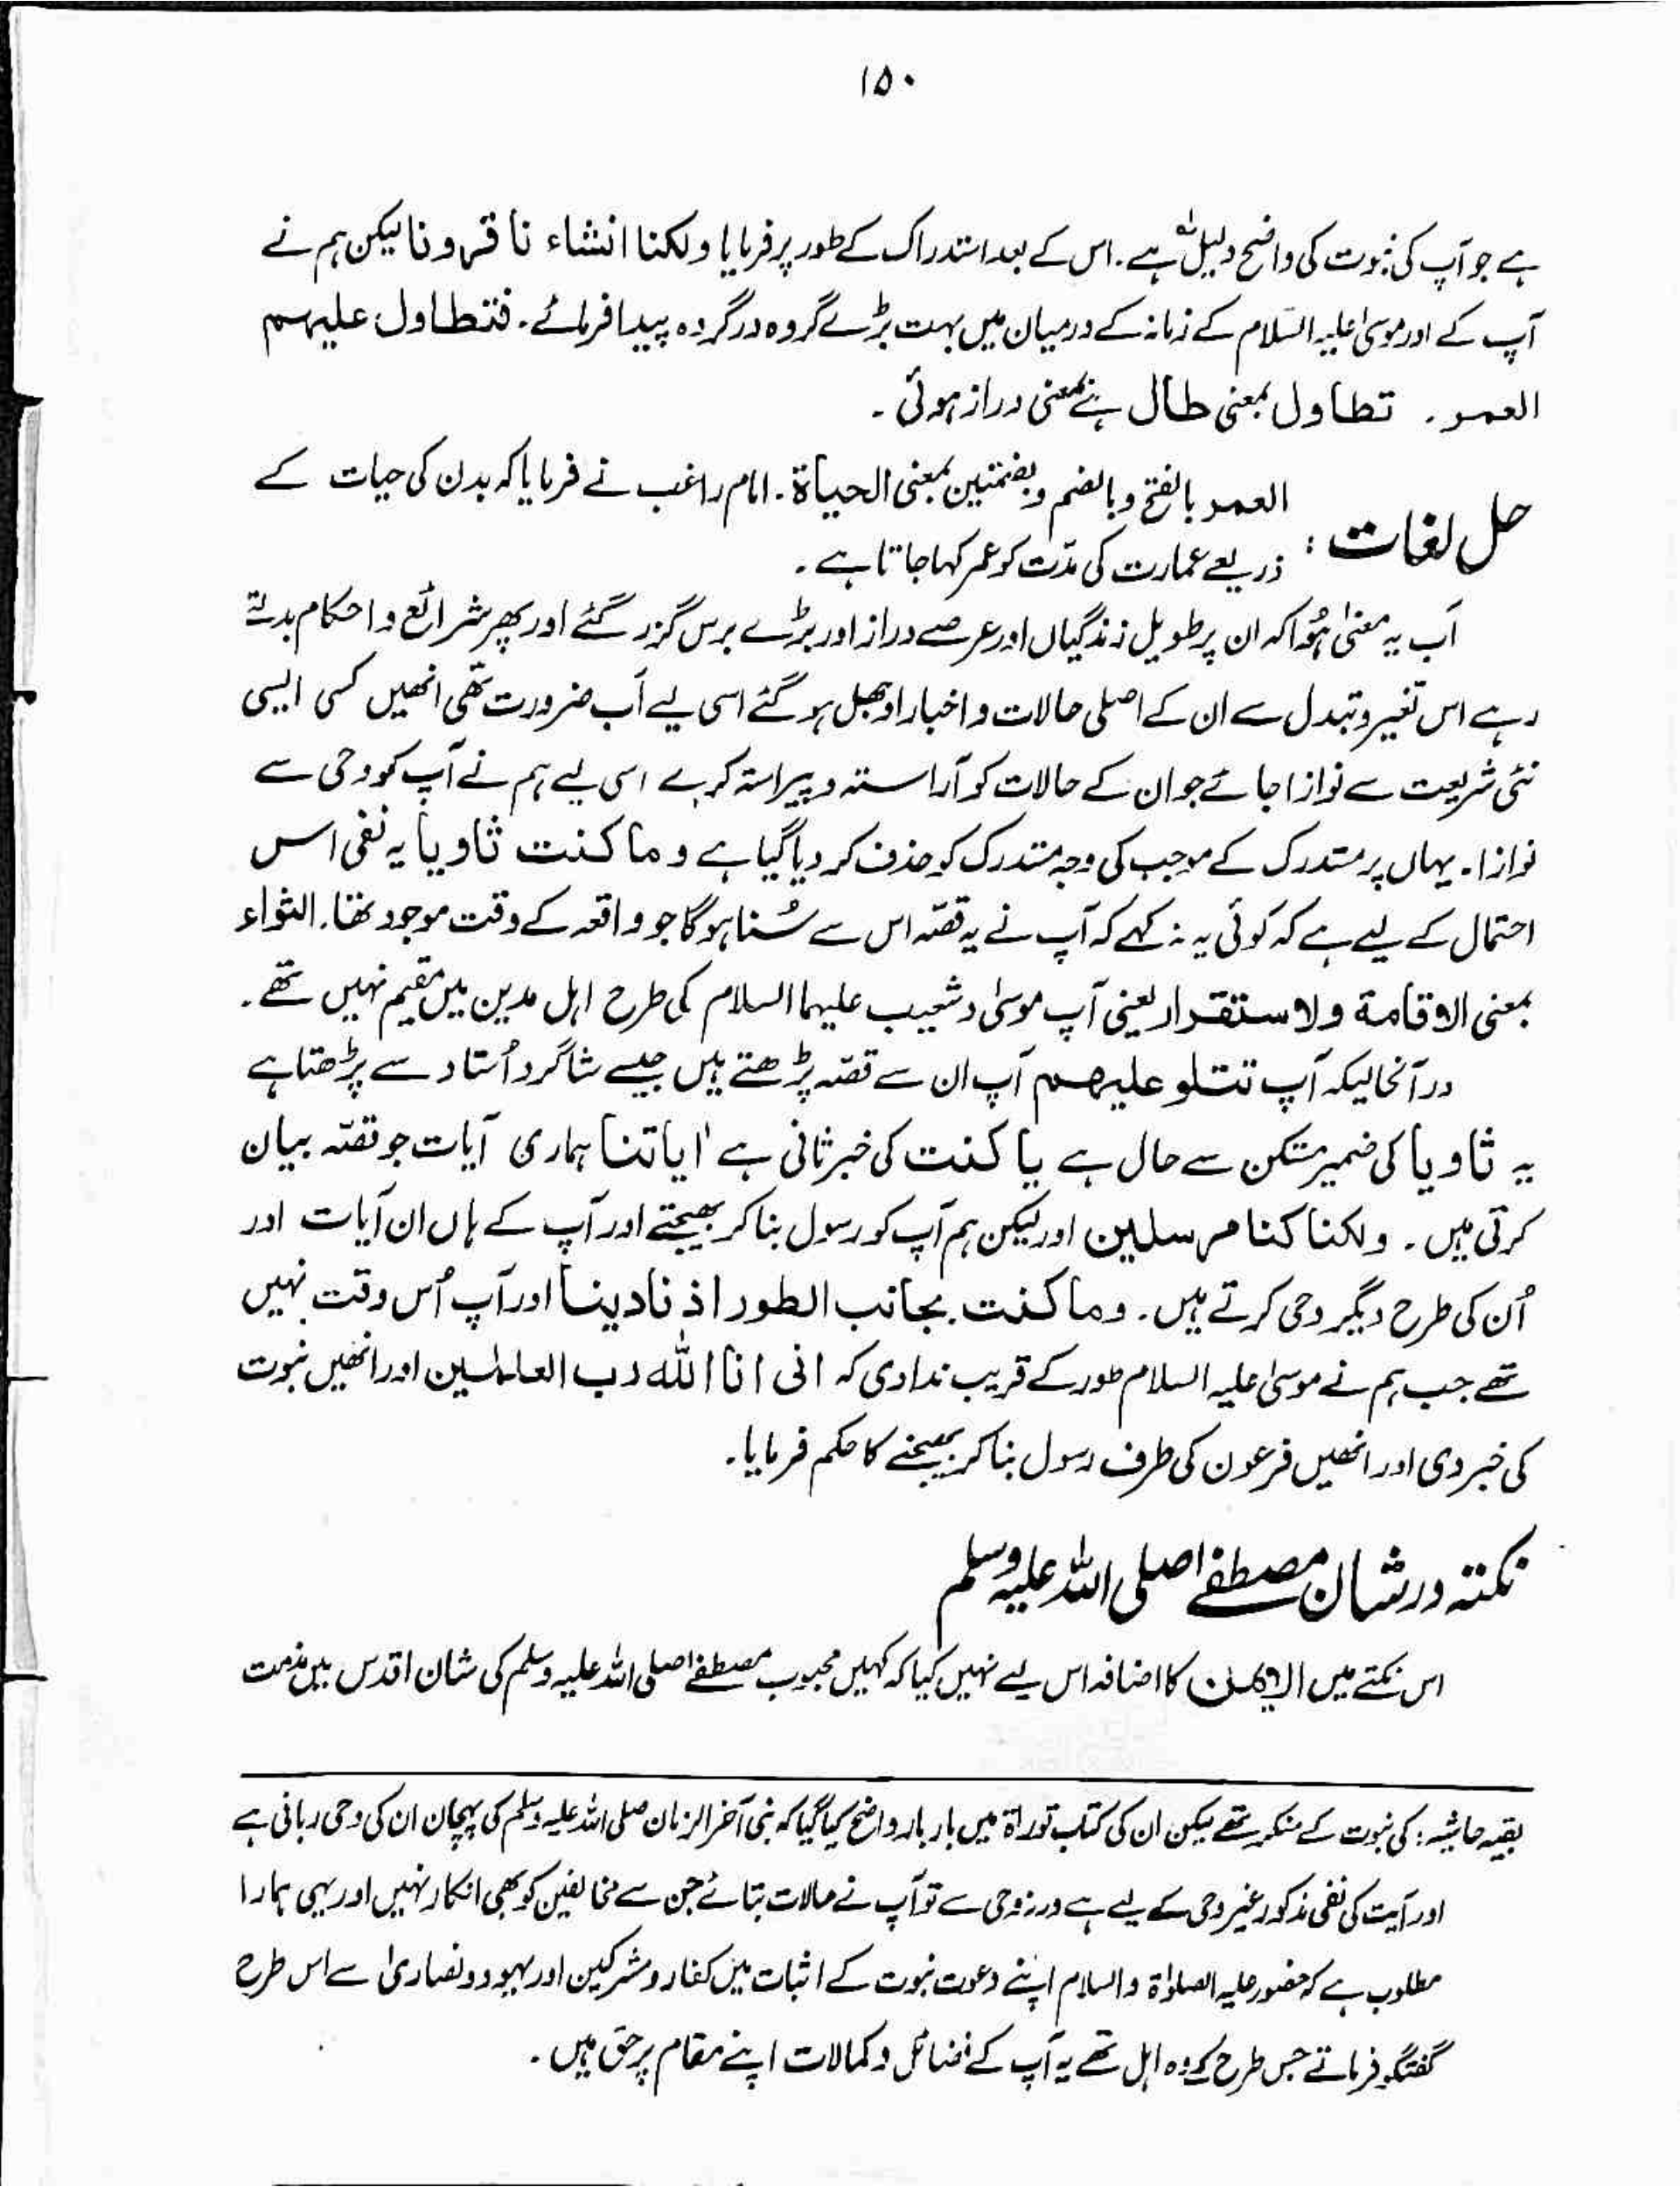 ۱۵۰
ہے جو آپ کی نبوت کی واضح دلیل ہے۔ اس کے بعد استدراک کے طور پر فرمایا ولکنا انشاء نا قرونا لیکن ہم نے
آپ کے اور موسیٰ علیہ السّلام کے زمانہ کے درمیان میں بہت بڑے گروہ در گروہ پیدا فرمائے۔ فتطاول علیہم
العمر۔ تطاول بمعنی طال ہے بمعنی دراز ہوئی۔
حل لغات: العمر بالفتح و بالضم و بضمتین بمعنی الحیاۃ۔ امام راغب نے فرمایا کہ بدن کی حیات کے
ذریعے عمارت کی مدّت کو عمر کہا جاتا ہے۔
اَب یہ معنیٰ ہُوا کہ ان پر طویل زندگیاں اور عرصے دراز اور بڑے برس گزر گئے اور پھر شرائع و احکام بدلتے
رہے اس تغیر و تبدل سے ان کے اصلی حالات و اخبار اوجھل ہو گئے اسی لیے اَب ضرورت تھی انھیں کسی ایسی
نئی شریعت سے نوازا جائے جو ان کے حالات کو آراستہ و پیراستہ کرے اسی لیے ہم نے آپ کو وحی سے
نوازا۔ یہاں پر مستدرک کے موجب کی وجہ مستدرک کو حذف کر دیا گیا ہے و ما کنت ثاویا یہ نفی اس
احتمال کے لیے ہے کہ کوئی یہ نہ کہے کہ آپ نے یہ قصّہ اس سے سُنا ہوگا جو واقعہ کے وقت موجود تھا۔ الثواء
بمعنی الاقامۃ ولاستقرار یعنی آپ موسیٰ و شعیب علیہما السلام کی طرح اہل مدین میں مقیم نہیں تھے۔
درآنحالیکہ آپ تتلو علیہم آپ ان سے قصّہ پڑھتے ہیں جیسے شاگرد اُستاد سے پڑھتا ہے
یہ ثاویا کی ضمیر متکن سے حال ہے یا کنت کی خبر ثانی ہے اٰیاتنا ہماری آیات جو قصّہ بیان
کرتی ہیں۔ ولکنا کنا مرسلین اور لیکن ہم آپ کو رسول بنا کر بھیجتے اور آپ کے ہاں ان آیات اور
اُن کی طرح دیگر وحی کرتے ہیں۔ وما کنت بجانب الطور اذ نادینا اور آپ اُس وقت نہیں
تھے جب ہم نے موسیٰ علیہ السلام طور کے قریب ندا دی کہ انی انا اللہ رب العالمین اور انھیں نبوت
کی خبر دی اور انھیں فرعون کی طرف رسول بنا کر بھیجنے کا حکم فرمایا۔
نکتہ در شان مصطفےٰ صلی اللہ علیہ وسلم
اس نکتے میں الایمن کا اضافہ اس لیے نہیں کیا کہ کہیں محبوب مصطفےٰ صلی اللہ علیہ وسلم کی شان اقدس میں مذمت
بقیہ حاشیہ: کی نبوت کے منکر تھے لیکن ان کی کتاب توراۃ میں بار بار واضح کیا گیا کہ نبی آخر الزمان صلی اللہ علیہ وسلم کی پہچان ان کی وحی ربانی ہے
اور آیت کی نفی مذکور غیر وحی کے لیے ہے ورنہ وحی سے تو آپ نے حالات بتائے جن سے مخالفین کو بھی انکار نہیں اور یہی ہمارا
مطلوب ہے کہ حضور علیہ الصلوٰۃ والسلام اپنے دعوت نبوت کے اثبات میں کفار و مشرکین اور یہود و نصاریٰ سے اس طرح
گفتگو فرماتے جس طرح کے وہ اہل تھے یہ آپ کے فضائل و کمالات اپنے مقام پر حق ہیں۔